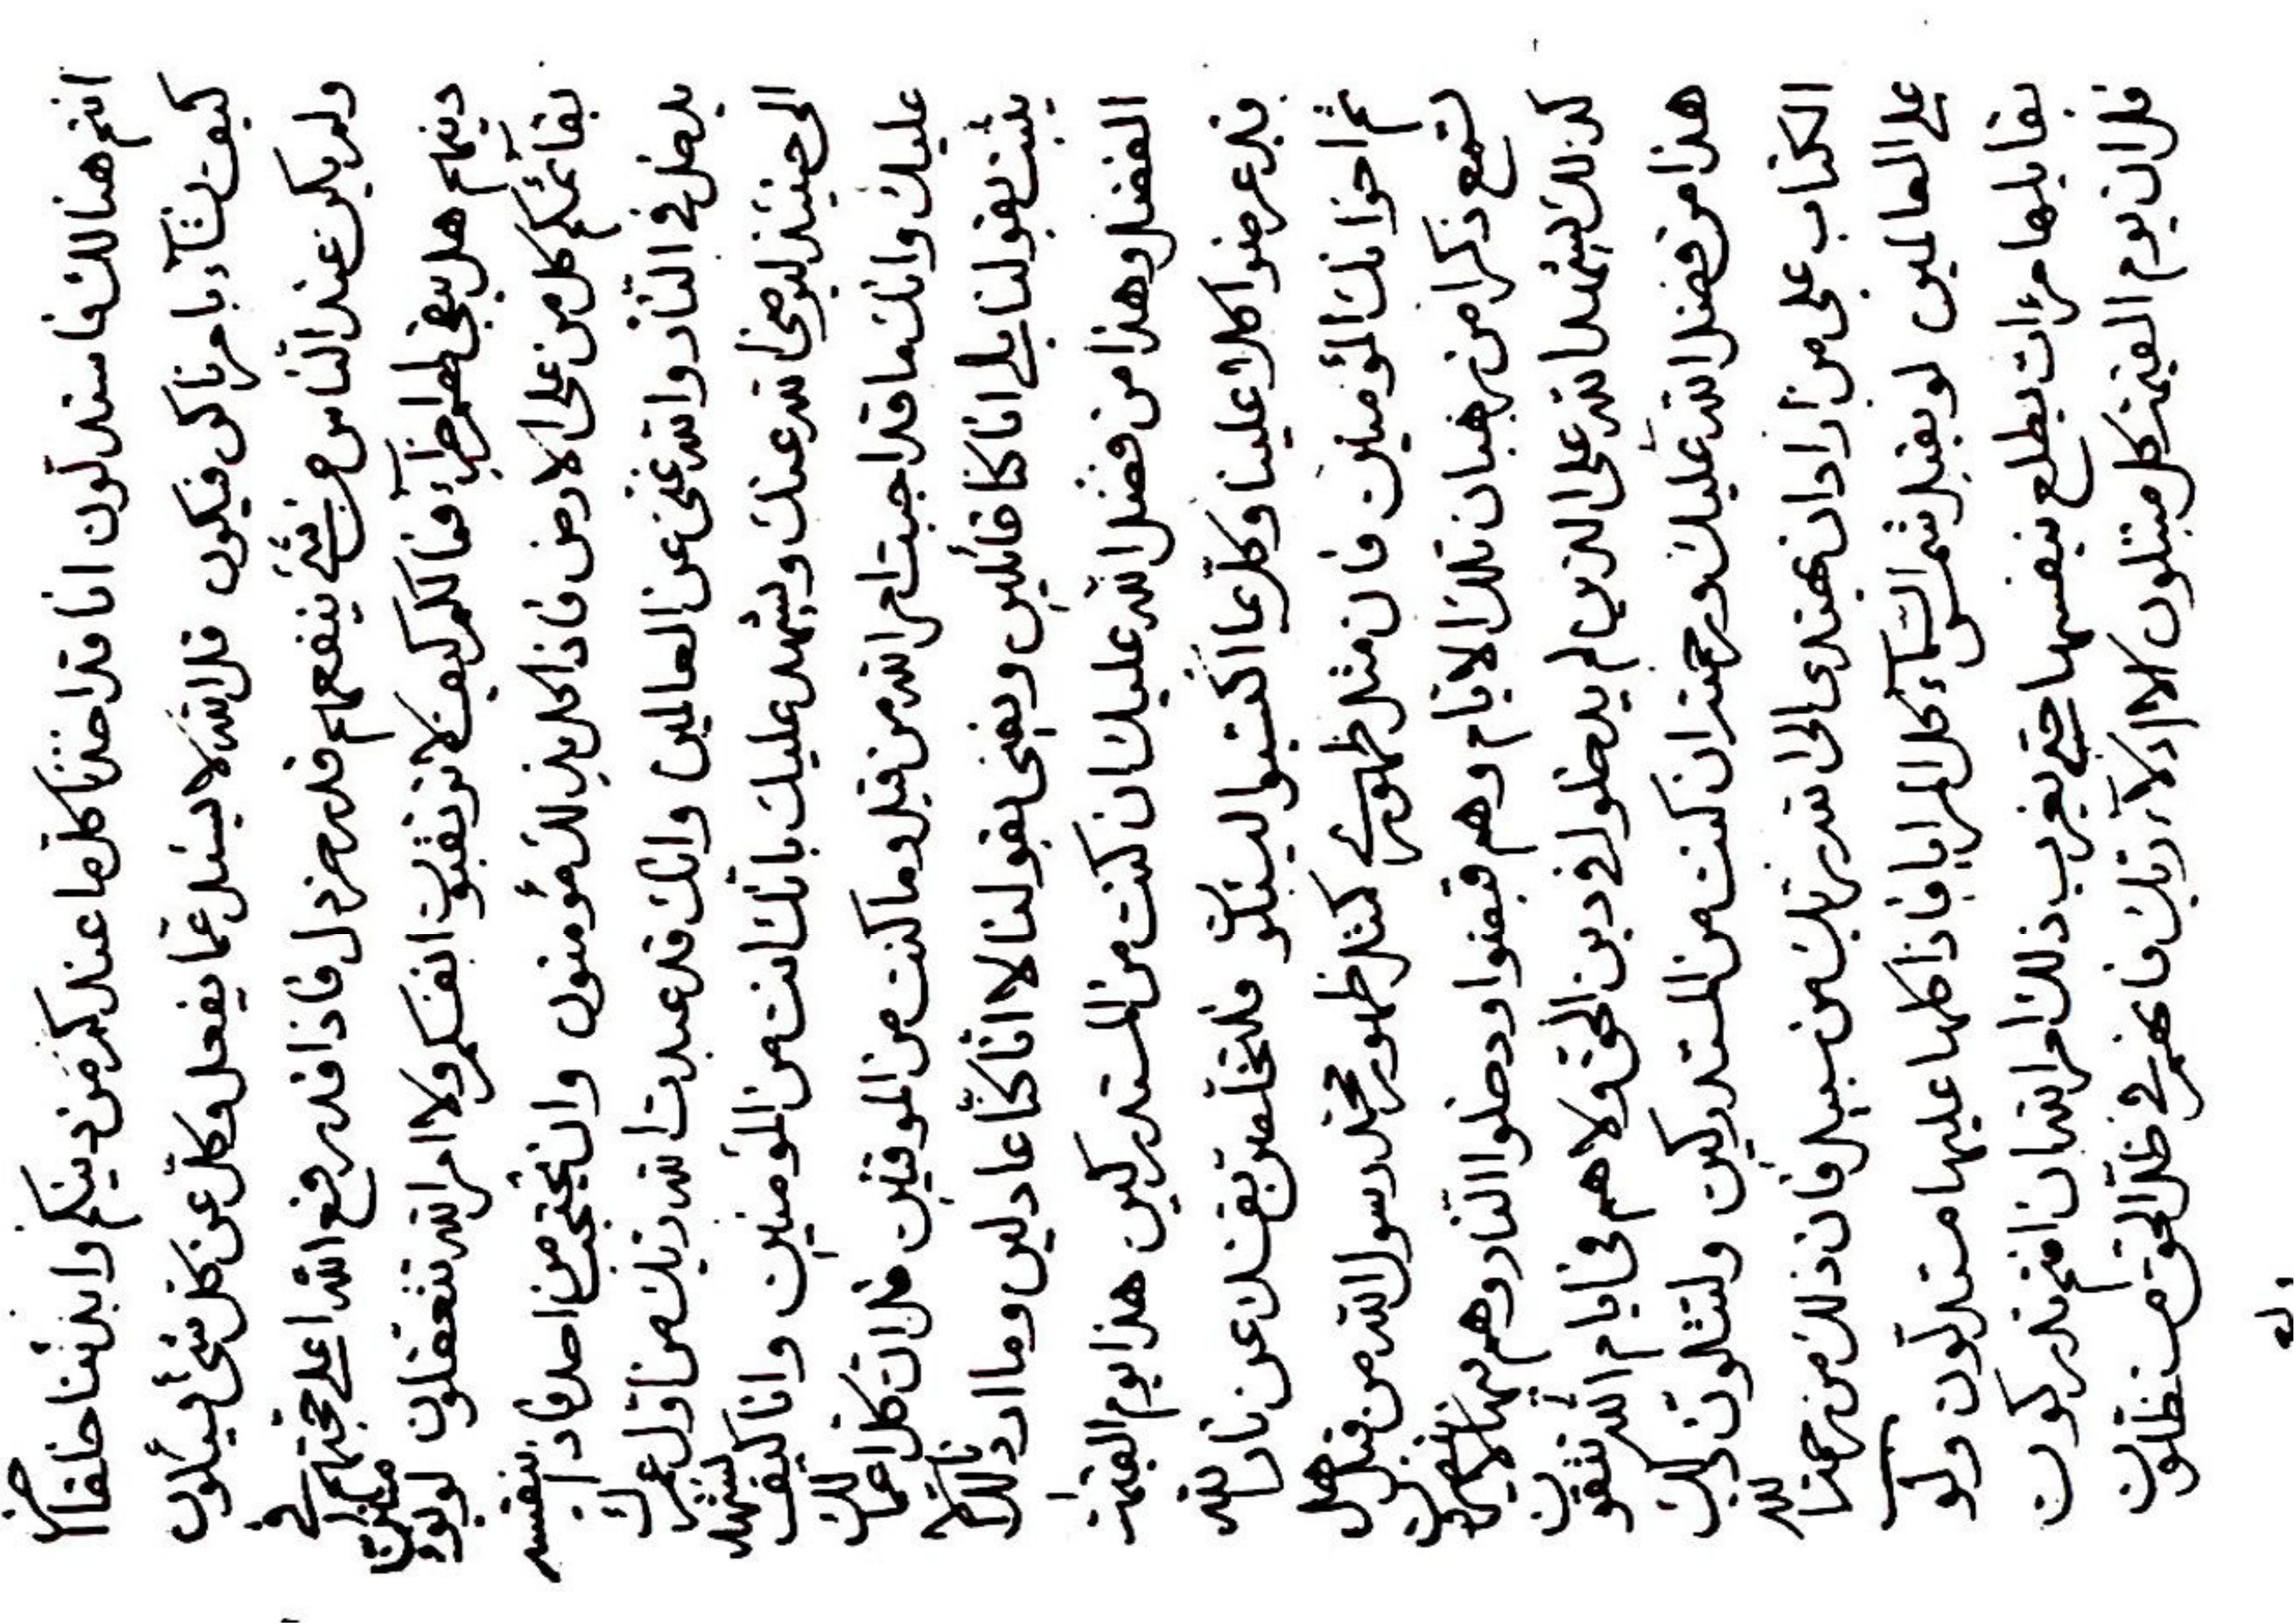 انتم هنالك فاستدلون انا قد اخذنا كلما عندكم من دينكم وابدئنا خلقا اخر
كيف نشآء بامرنا كن فيكون قل الله لا يسئل عما يفعل وكل عن كل شئ يسئلون
ولم يكن عند الناس من شئ ينفعهم قدر خردل فاذا قد رفع الله اعلي حجتهم في
دينهم هل يبقى لهم فما لكم كيف لا ترتقبون انفسكم ولا امر الله تتعقلون
بقائكم كل من على الارض فاذا كل بذلك مؤمنون وان يحتجب من احد فاذا بنفسه
يدخل في النار والله غني عن العالمين وانك قد عبدت الله ربك من اول عمرك
الى حينئذ لترضى الله عنك ويشهد عليك بانك انت من المؤمنين وانا كيف نشهد
عليك وانك ما قد اجبت امر الله من قبل وما كنت من الموقنين قل ان كل اعمالك
يثبت بقولنا بلى انا كنا قائلين ويفنى بقولنا لا انا كنا عادلين وما اردناك الا
الفضل وهذا من فضل الله عليك ان كنت من المستدركين هذا يوم القيمة
قد عرضوا كل علينا وكل بما اكتسبوا ليسئلون فلتخلصن نفسك عن نار الله
ثم احزانك المؤمنين فان مثل ظهوري كمثل ظهور محمد رسول الله من قبل هل
تسمع ذكرا من رهبان تلك الايام وهم قبضوا ودخلوا النار وهم فيها
كذلك يشهد الله على الذين لم يدخلوا في دين الحق ولا هم في ايام الله يتقون
هذا من فضل الله عليك ورحمته ان كنت من المستدركين ولنتلون ذلك
الكتاب على من اراد ان يهتدى الى الله ربك من سبيل فان ذلك من رحمة الله
على العالمين لو يقبل شمس السماء كل المرايا فاذا كلها عليها مستدلون ولو
يقابلها مرات يطلع بنفسها حتى يغرب ذلك امر الله ان انتم تدركون
قل ان يوم القيمة كل مبتلون الا ادلاء ربك فانهم في ظل الحق مستظلون